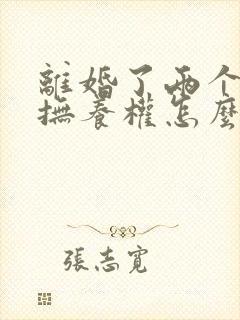 離婚了兩个
撫養權怎麼
張志寬